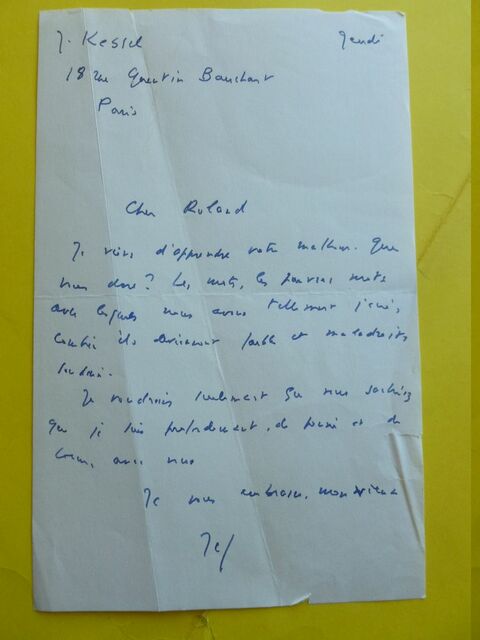 J. Kessel Jeudi
18 rue Quentin Bauchart
Paris
Cher Roland
Je viens d'apprendre votre malheur. Que
vous dire ? Les mots, les pauvres mots
avec lesquels nous avons tellement joué,
combien ils deviennent faibles et maladroits
soudain.
Je voudrais seulement que vous sachiez
que je suis profondément, de pensée et de
coeur, avec vous
Je vous embrasse, mon vieux
Jef